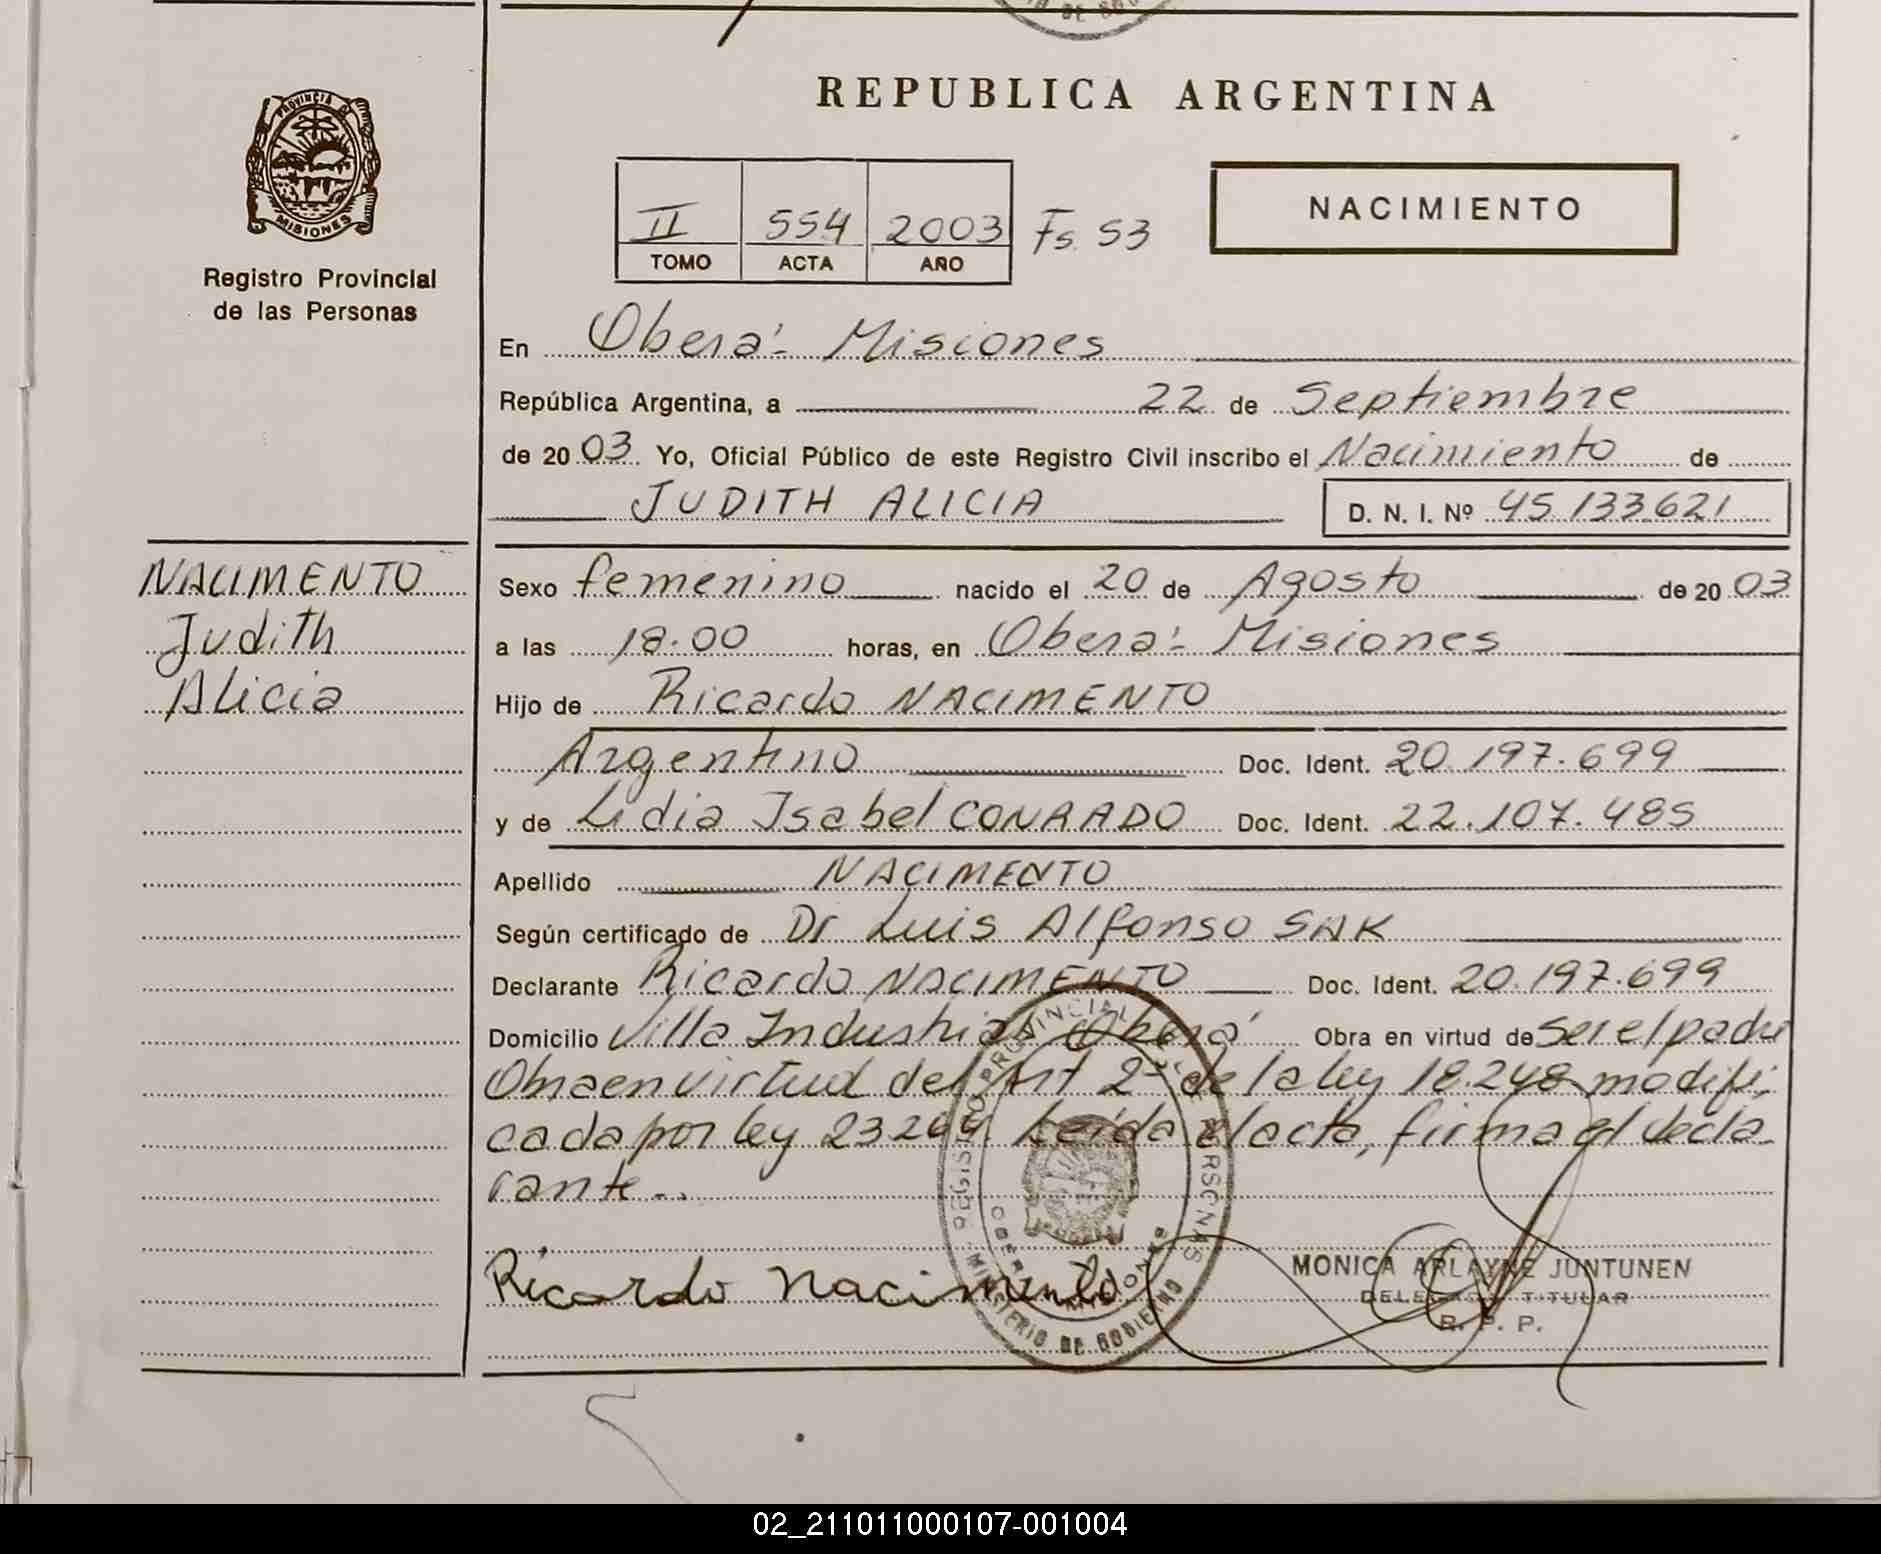 DE GOB
REPUBLICA ARGENTINA
PROVINCIA DE
MISIONES
Registro Provincial
de las Personas
II 554 2003 Fs. 53
TOMO ACTA AÑO
NACIMIENTO
En Oberá - Misiones
República Argentina, a 22 de Septiembre
de 2003 Yo, Oficial Público de este Registro Civil inscribo el Nacimiento de
JUDITH ALICIA D. N. I. Nº 45.133.621
NACIMENTO
Judith
Alicia
Sexo femenino nacido el 20 de Agosto de 2003
a las 18.00 horas, en Oberá - Misiones
Hijo de Ricardo NACIMENTO
Argentino Doc. Ident. 20.197.699
y de Lidia Isabel CONRADO Doc. Ident. 22.107.485
Apellido NACIMENTO
Según certificado de Dr Luis Alfonso SAK
Declarante Ricardo NACIMENTO Doc. Ident. 20.197.699
Domicilio Villa Industrial Oberá Obra en virtud de Ser el padre
Obra en virtud del Art 2º de la ley 18.248 modifi-
cada por ley 23264. Leída el acta, firma el decla-
rante..
REGISTRO PROVINCIAL DE LAS PERSONAS
OBERÁ MISIONES
MINISTERIO DE GOBIERNO
Ricardo Nacimento
MONICA ARLAYNE JUNTUNEN
DELEGADO TITULAR
R. P. P.
02_211011000107-001004